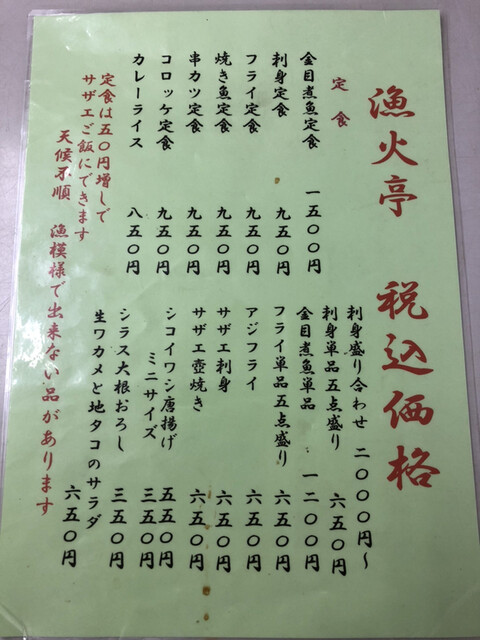 漁火亭　税込価格
定食
金目煮魚定食　一五〇〇円
刺身定食　九五〇円
フライ定食　九五〇円
焼き魚定食　九五〇円
串カツ定食　九五〇円
コロッケ定食　九五〇円
カレーライス　八五〇円
定食は五〇円増しで
サザエご飯にできます
刺身盛り合わせ　二〇〇〇円～
刺身単品五点盛り　六五〇円
金目煮魚単品　一二〇〇円
フライ単品五点盛り　六五〇円
アジフライ　六五〇円
サザエ刺身　六五〇円
サザエ壺焼き　六五〇円
シコイワシ唐揚げ　五五〇円
ミニサイズ　三五〇円
シラス大根おろし　三五〇円
生ワカメと地タコのサラダ　六五〇円
天候不順　漁模様で出来ない品があります